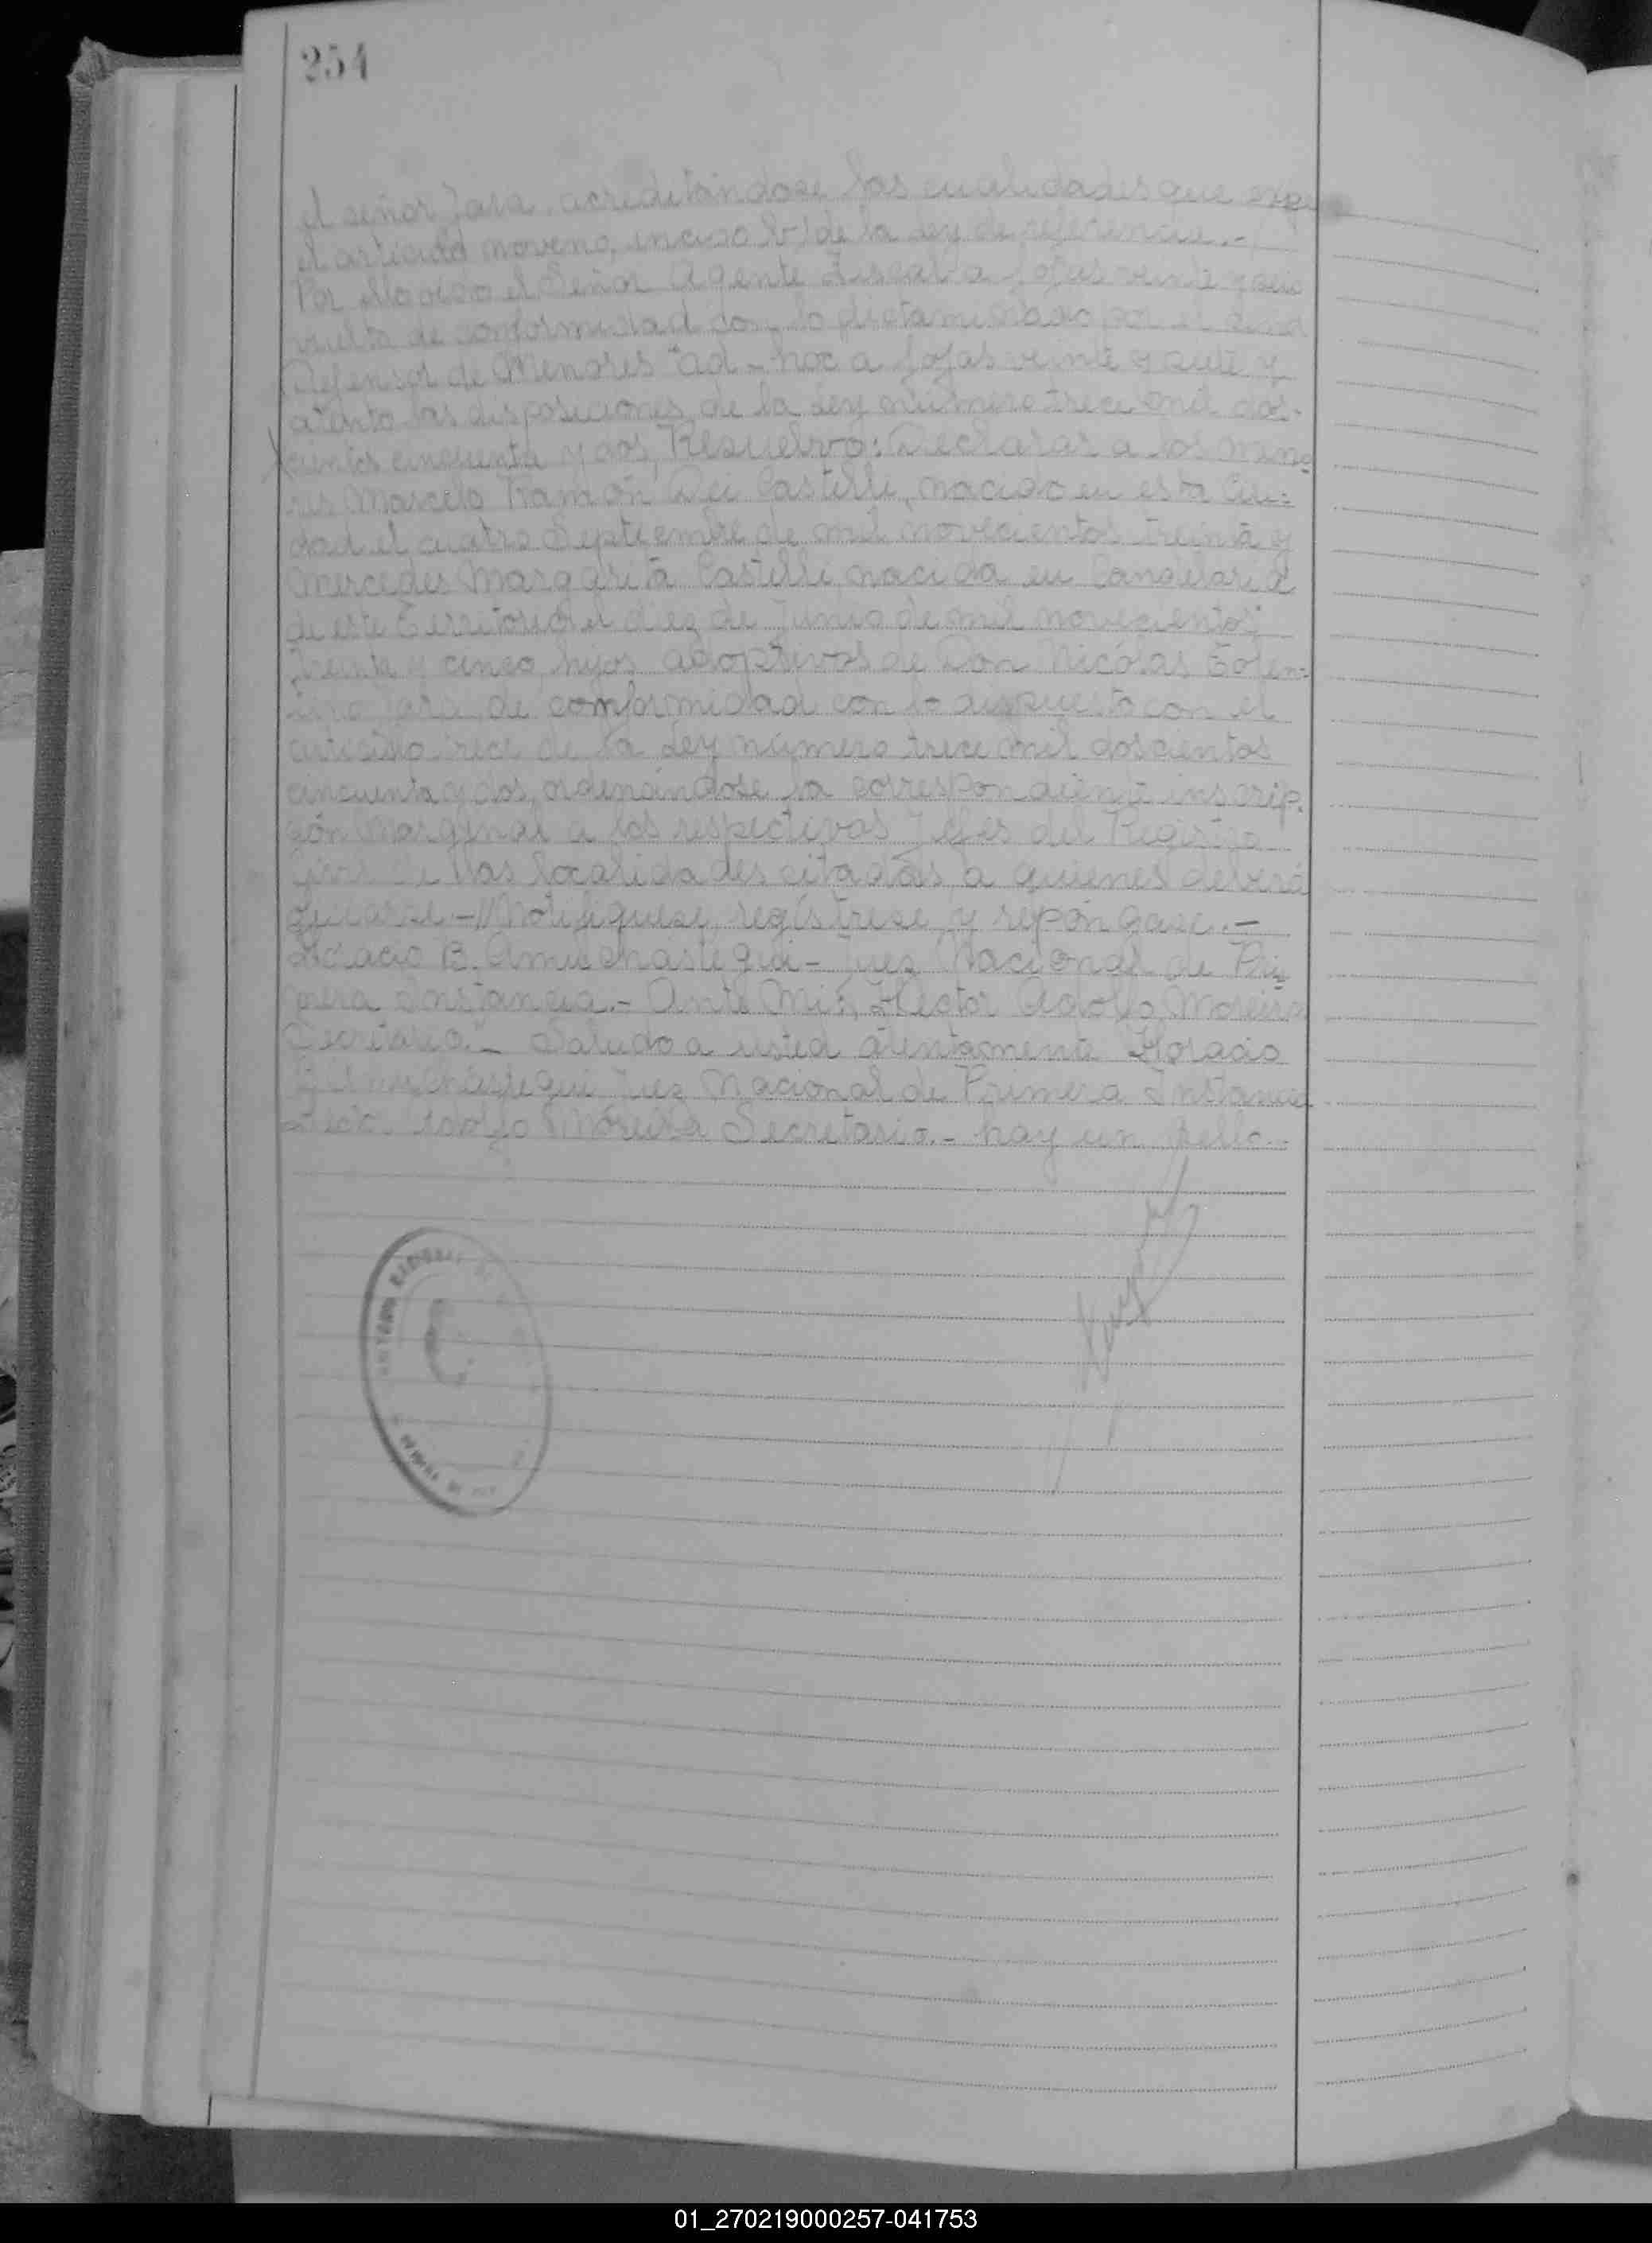 254
el señor Jara, acreditándose las cualidades que exige
el artículo noveno, inciso b) de la Ley de referencia.-
Por ello oído el Señor Agente Fiscal a fojas veinte y seis
vuelta de conformidad con lo dictaminado por el señor
Defensor de Menores "ad-hoc a fojas veinte y siete y
atento las disposiciones de la Ley número trece mil dos-
cientos cincuenta y dos, Resuelvo: Declarar a los meno-
res Marcelo Ramón Dei Castelli, nacido en esta Ciu-
dad el cuatro Septiembre de mil novecientos treinta y
Mercedes Margarita Castelli, nacida en Candelaria
de este Territorio el diez de Junio de mil novecientos
treinta y cinco, hijos adoptivos de Don Nicólas Tolen-
tino Jara, de conformidad con lo dispuesto con el
artículo trece de la Ley número trece mil doscientos
cincuenta y dos, ordenándose la correspondiente inscrip-
ción Marginal a los respectivos Jefes del Registro
Civil de las localidades citadas a quienes deberá
oficiarse.-//Notifíquese, regístrese y repóngase.-
Horacio B. Amuchastegui- Juez Nacional de Pri-
mera Instancia.- Ante Mi: Hector Adolfo Moreira
Secretario."- Saludo a usted atentamente Horacio
B Amuchastegui Juez Nacional de Primera Instancia
Hector Adolfo Moreira Secretario.- hay un sello.-
01_270219000257-041753